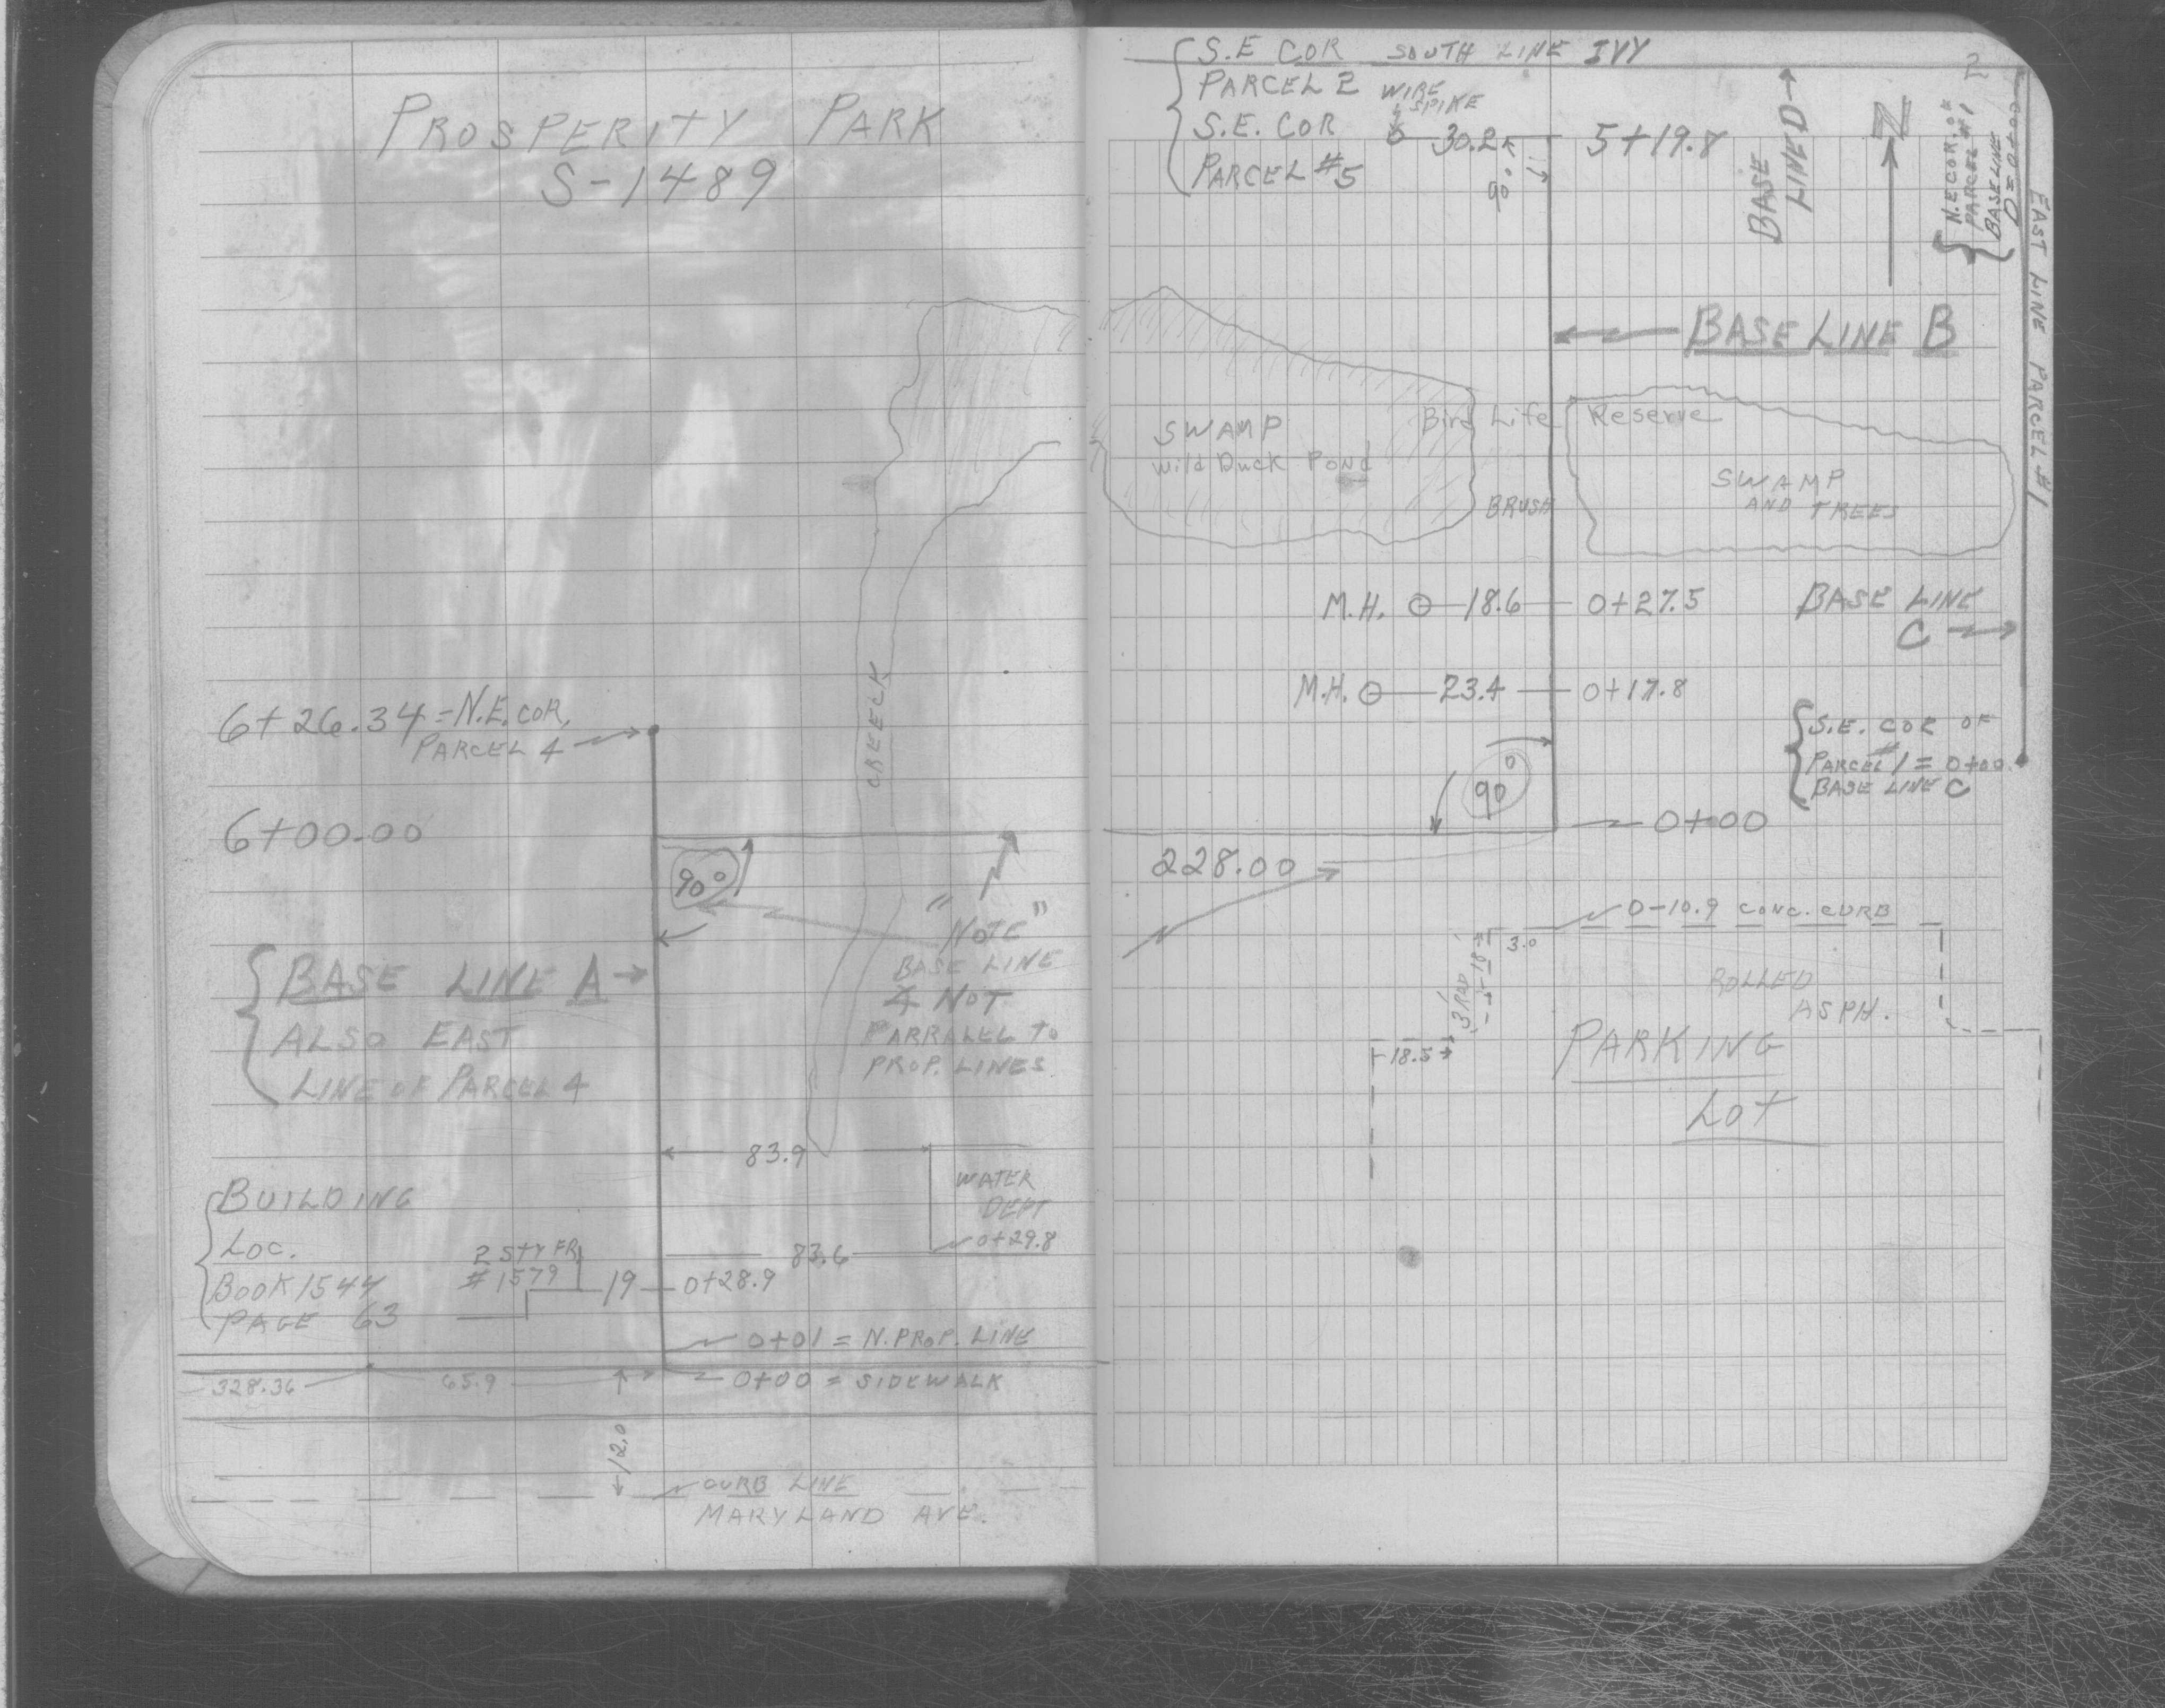 PROSPERITY PARK
S-1489
6+26.34 = N.E. COR.
PARCEL 4
CREECK
6+00.00
90°
"NOTE"
BASE LINE
4 NOT
PARRALEL TO
PROP. LINES
BASE LINE A
ALSO EAST
LINE OF PARCEL 4
83.9
BUILDING
LOC.
BOOK 1544
PAGE 63
WATER
DEPT
0+29.8
83.6
2 STY FR.
#1579
19
0+28.9
0+01 = N. PROP. LINE
328.36
65.9
0+00 = SIDEWALK
12.0
CURB LINE
MARYLAND AVE.
2
S.E COR SOUTH LINE IVY
PARCEL 2 WIRE
SPIKE
S.E. COR 30.2 5+19.8
PARCEL #5
90°
BASE
LINE D
N
N.E COR. OF
PARCEL #1
BASE LINE
D = 0+00
EAST LINE PARCEL #1
BASE LINE B
SWAMP
Wild Duck Pond
Bird Life Reserve
BRUSH
SWAMP
AND TREES
M.H. 18.6 0+27.5
BASE LINE
C
M.H. 23.4 0+17.8
S.E. COR OF
PARCEL #1 = 0+00
BASE LINE C
90°
0+00
228.00
0-10.9 CONC. CURB
3.0
18'
3' RAD
18.5
ROLLED
ASPH.
PARKING
LOT